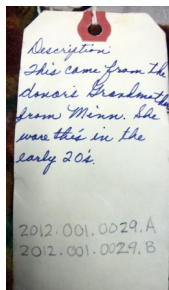 Description:
This came from the
donor's Grandmother
from Minn. She
wore this in the
early 20's.
2012.001.0029.A
2012.001.0029.B